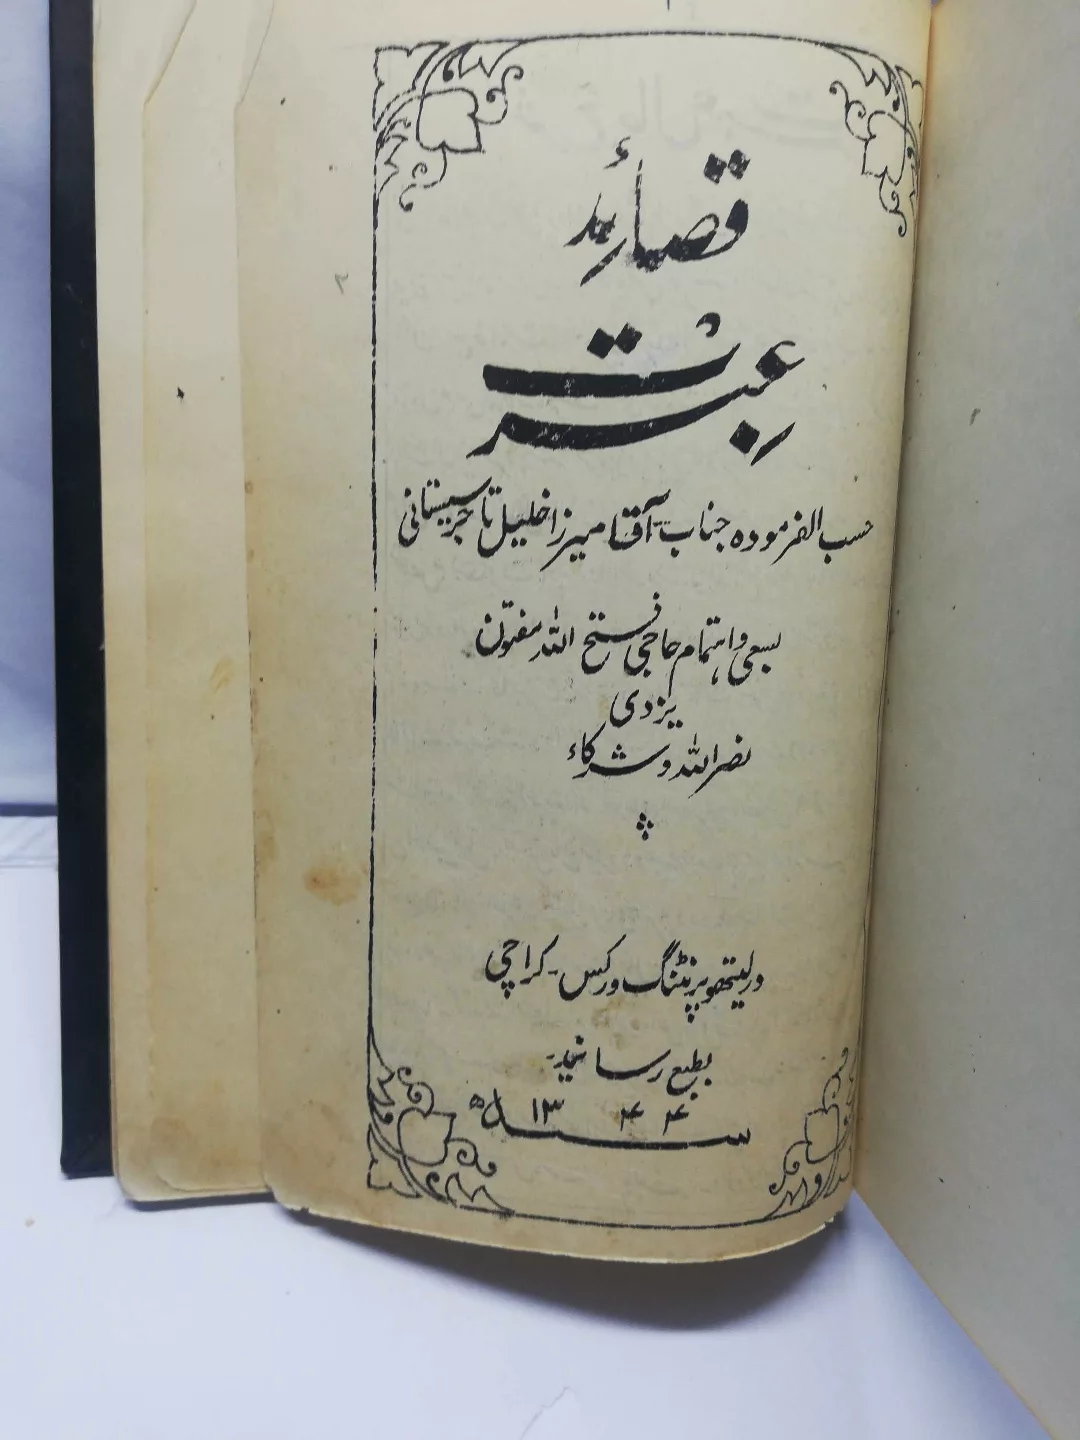 قصائد
عبرت
حسب الفرموده جناب آقا میرزا خلیل تاجر سیستانی
بسعی و اهتمام حاجی فتح الله مفتون
یزدی
نصرالله و شرکاء
در لیتھو پرنٹنگ ورکس - کراچی
بطبع رسانید
سنه ۱۳۴۴ھ